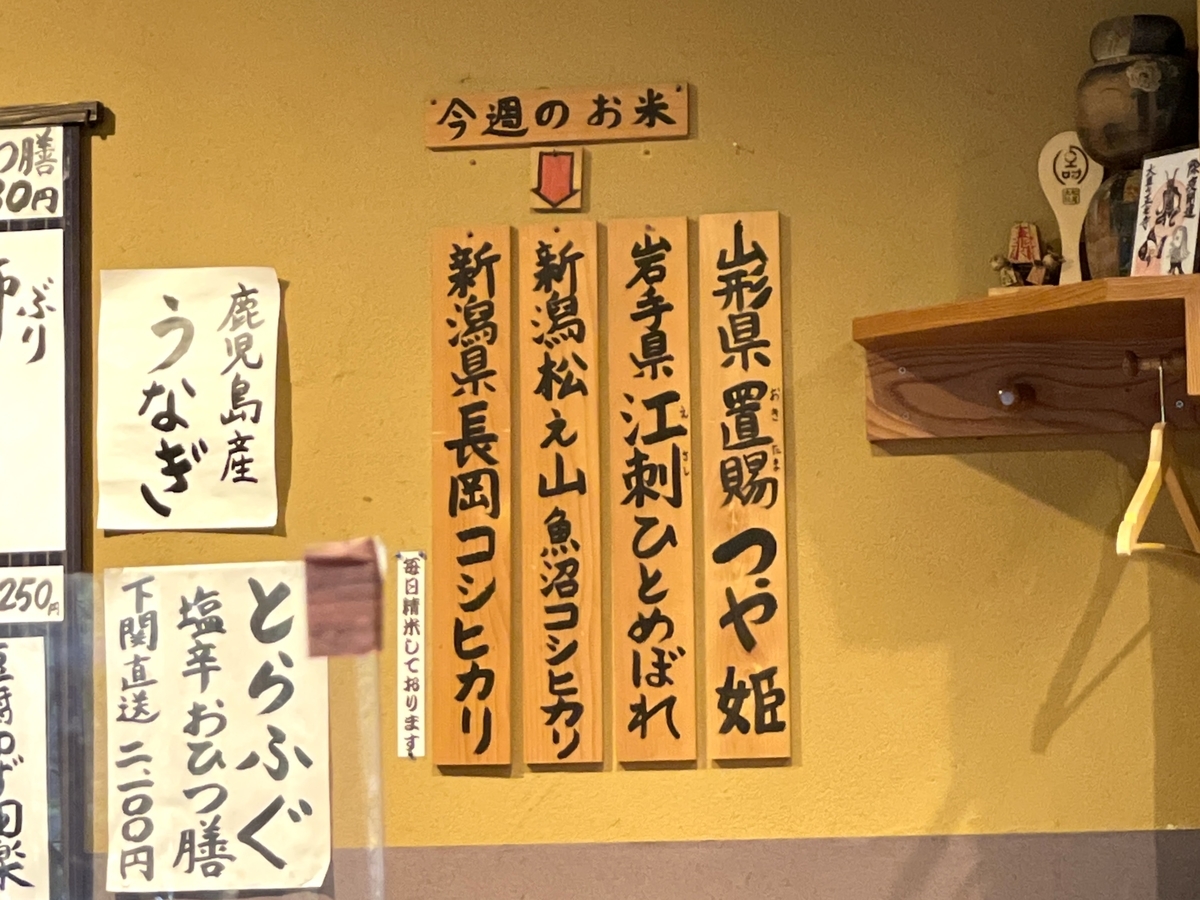 今週のお米
山形県置賜つや姫
おきたま
岩手県江刺ひとめぼれ
えさし
新潟松え山魚沼コシヒカリ
新潟県長岡コシヒカリ
毎日精米しております
鹿児島産
うなぎ
とらふぐ
塩辛おひつ膳
下関直送 二、二〇〇円
つ膳
30円
ぶり
250円